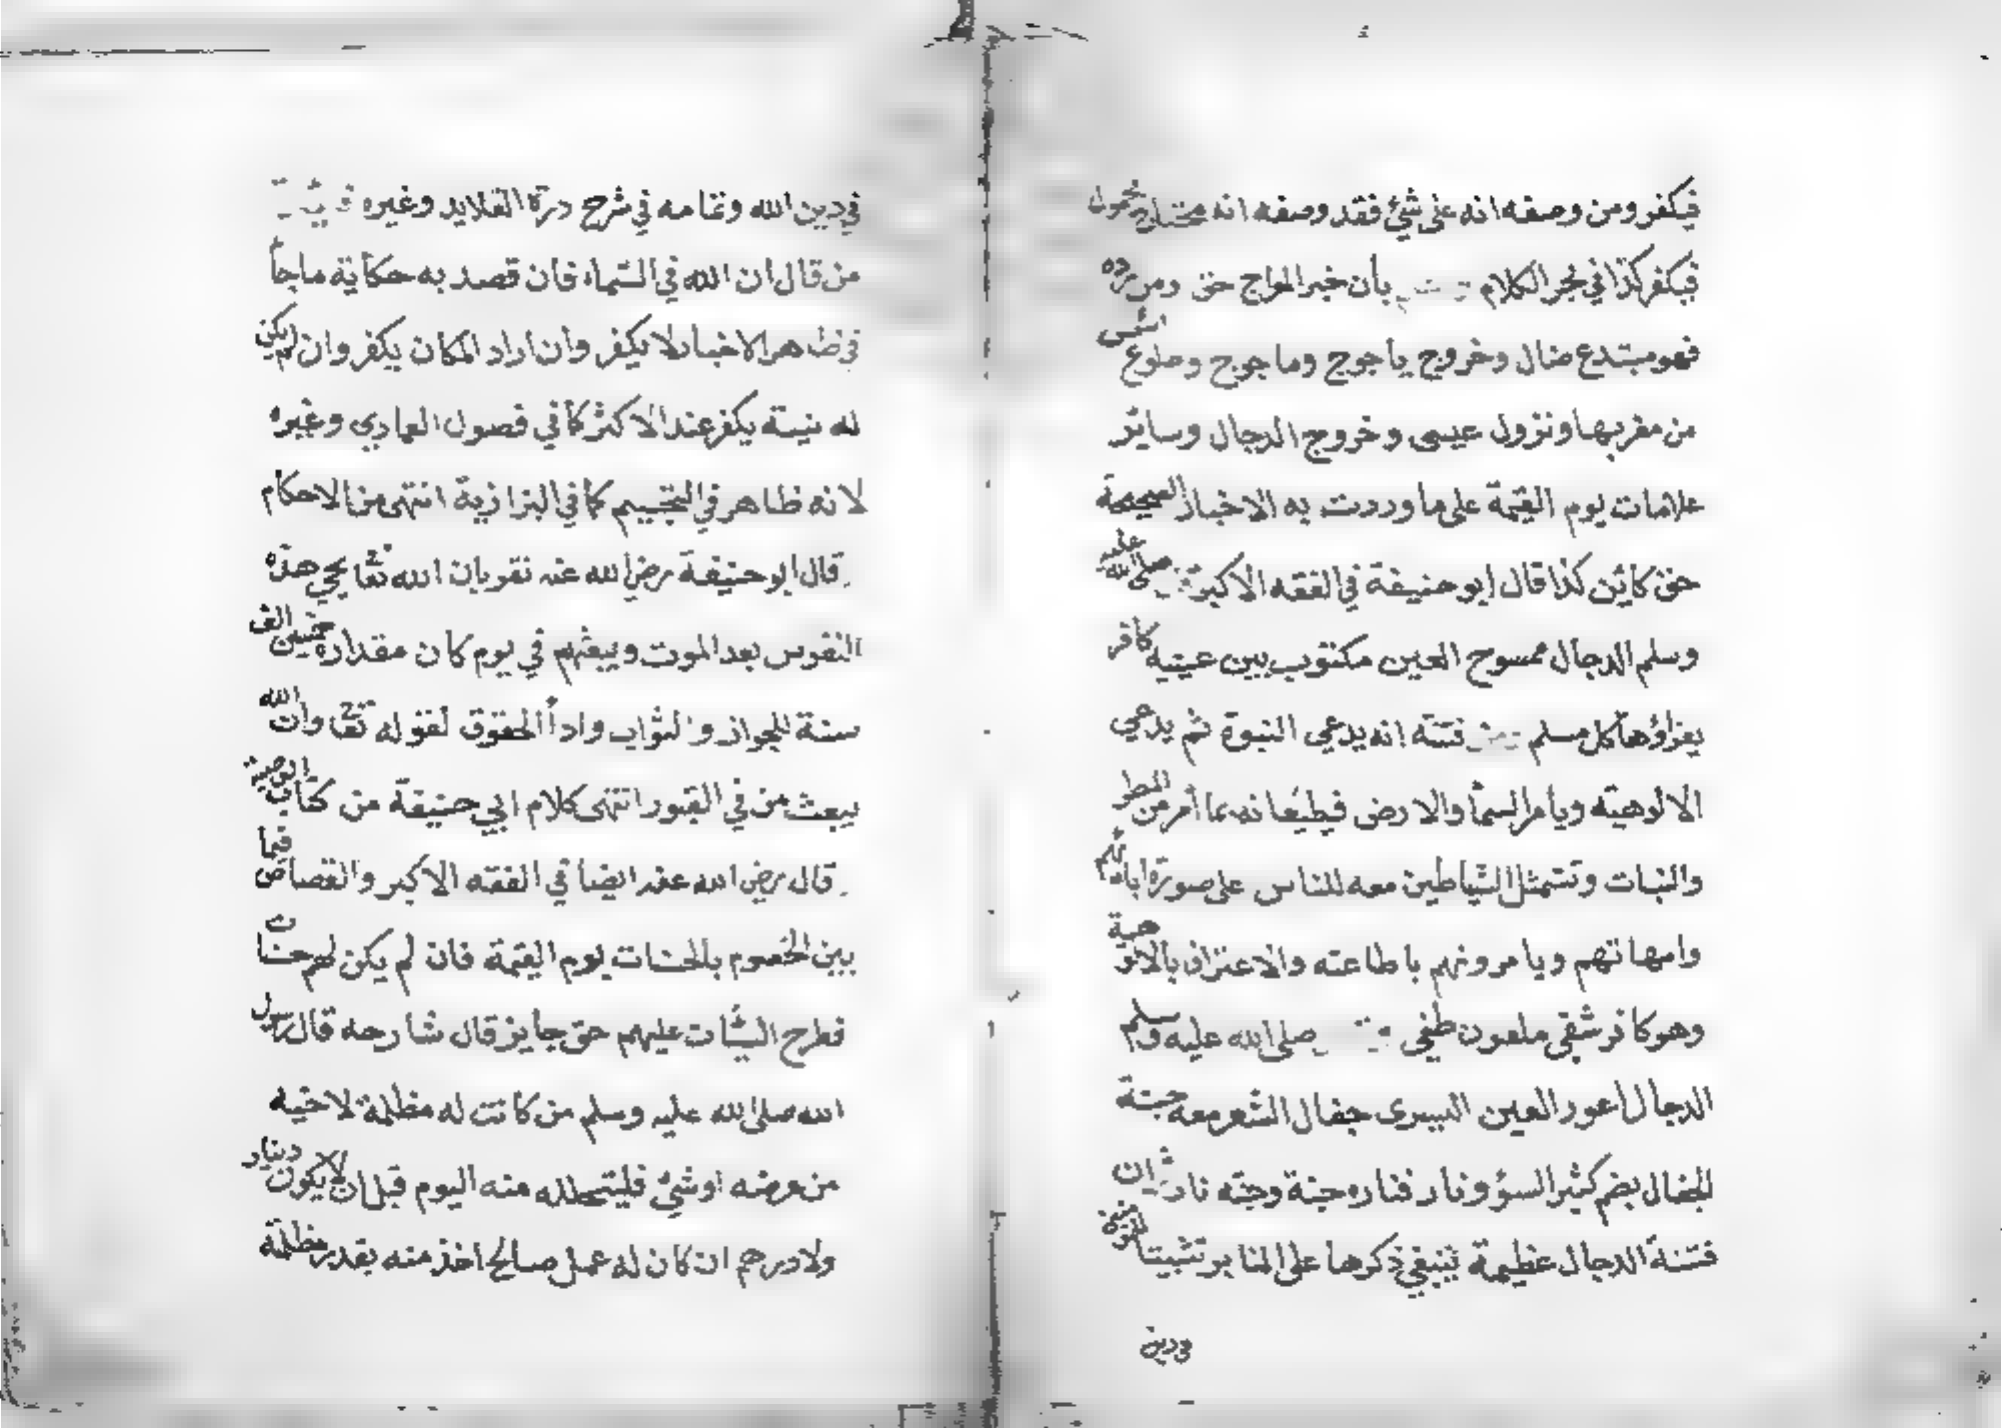 فيكفر ومن وصفه انه على شئ فقد وصفه انه محتاج محمول
فيكفر كذا في بحر الكلام بأن خبر المعراج حق ومن رده
فهو مبتدع ضال وخروج يأجوج ومأجوج وطلوع الشمس
من مغربها ونزول عيسى وخروج الدجال وسائر
علامات يوم القيمة على ما وردت به الاخبار الصحيحة
حق كائن كذا قال ابو حنيفة في الفقه الاكبر صلى الله عليه
وسلم الدجال ممسوح العين مكتوب بين عينيه كافر
يقراؤها كل مسلم فتنته انه يدعي النبوة ثم يدعي
الالوهيته ويأمر السمأ والارض فيطيعانه بما أمر من المطر
والنبات وتتمثل الشياطين معه للناس على صورة ابائهم
وامهاتهم ويامرونهم باطاعته والاعتراف بالالوهية
وهو كافر شقى ملعون طغى صلى الله عليه وسلم
الدجال اعور العين اليسرى جفال الشعر معه جنة
الجفال بضم كثير السؤ ونار فناره جنة وجنته نار ان
فتنة الدجال عظيمة ينبغي ذكرها على المنابر تثبيتا
في دين
في دين الله وتمامه في شرح درة القلايد وغيره
من قال ان الله في السماء فان قصد به حكاية ما جأ
في ظاهر الاخبار لا يكفر وان اراد المكان يكفر وان لم يكن
له نيتة يكفر عند الاكثر كما في فصول العمادي وغيره
لانه ظاهر في التجسيم كما في البزازية انتهى من الاحكام
قال ابو حنيفة رضي الله عنه نقر بان الله تعا يحي هذه
النفوس بعد الموت ويبعثهم في يوم كان مقداره خمسين الف
سنة للجواز والثواب وادأ الحقوق لقوله تعا وان الله
يبعث من في القبور انتهى كلام ابي حنيفة من كتاب الوصية
قال رضي الله عنه ايضا في الفقه الاكبر والقصاص فيما
بين الخصوم بالحسنات يوم القيمة فان لم يكن لهم حسنات
فطرح السيئات عليهم حق جايز قال شارحه قال رسول
الله صلى الله عليه وسلم من كانت له مظلمة لاخيه
من عرضه او شئ فليتحلله منه اليوم قبل ان لا يكون دينار
ولا درهم ان كان له عمل صالح اخذ منه بقدر مظلمة